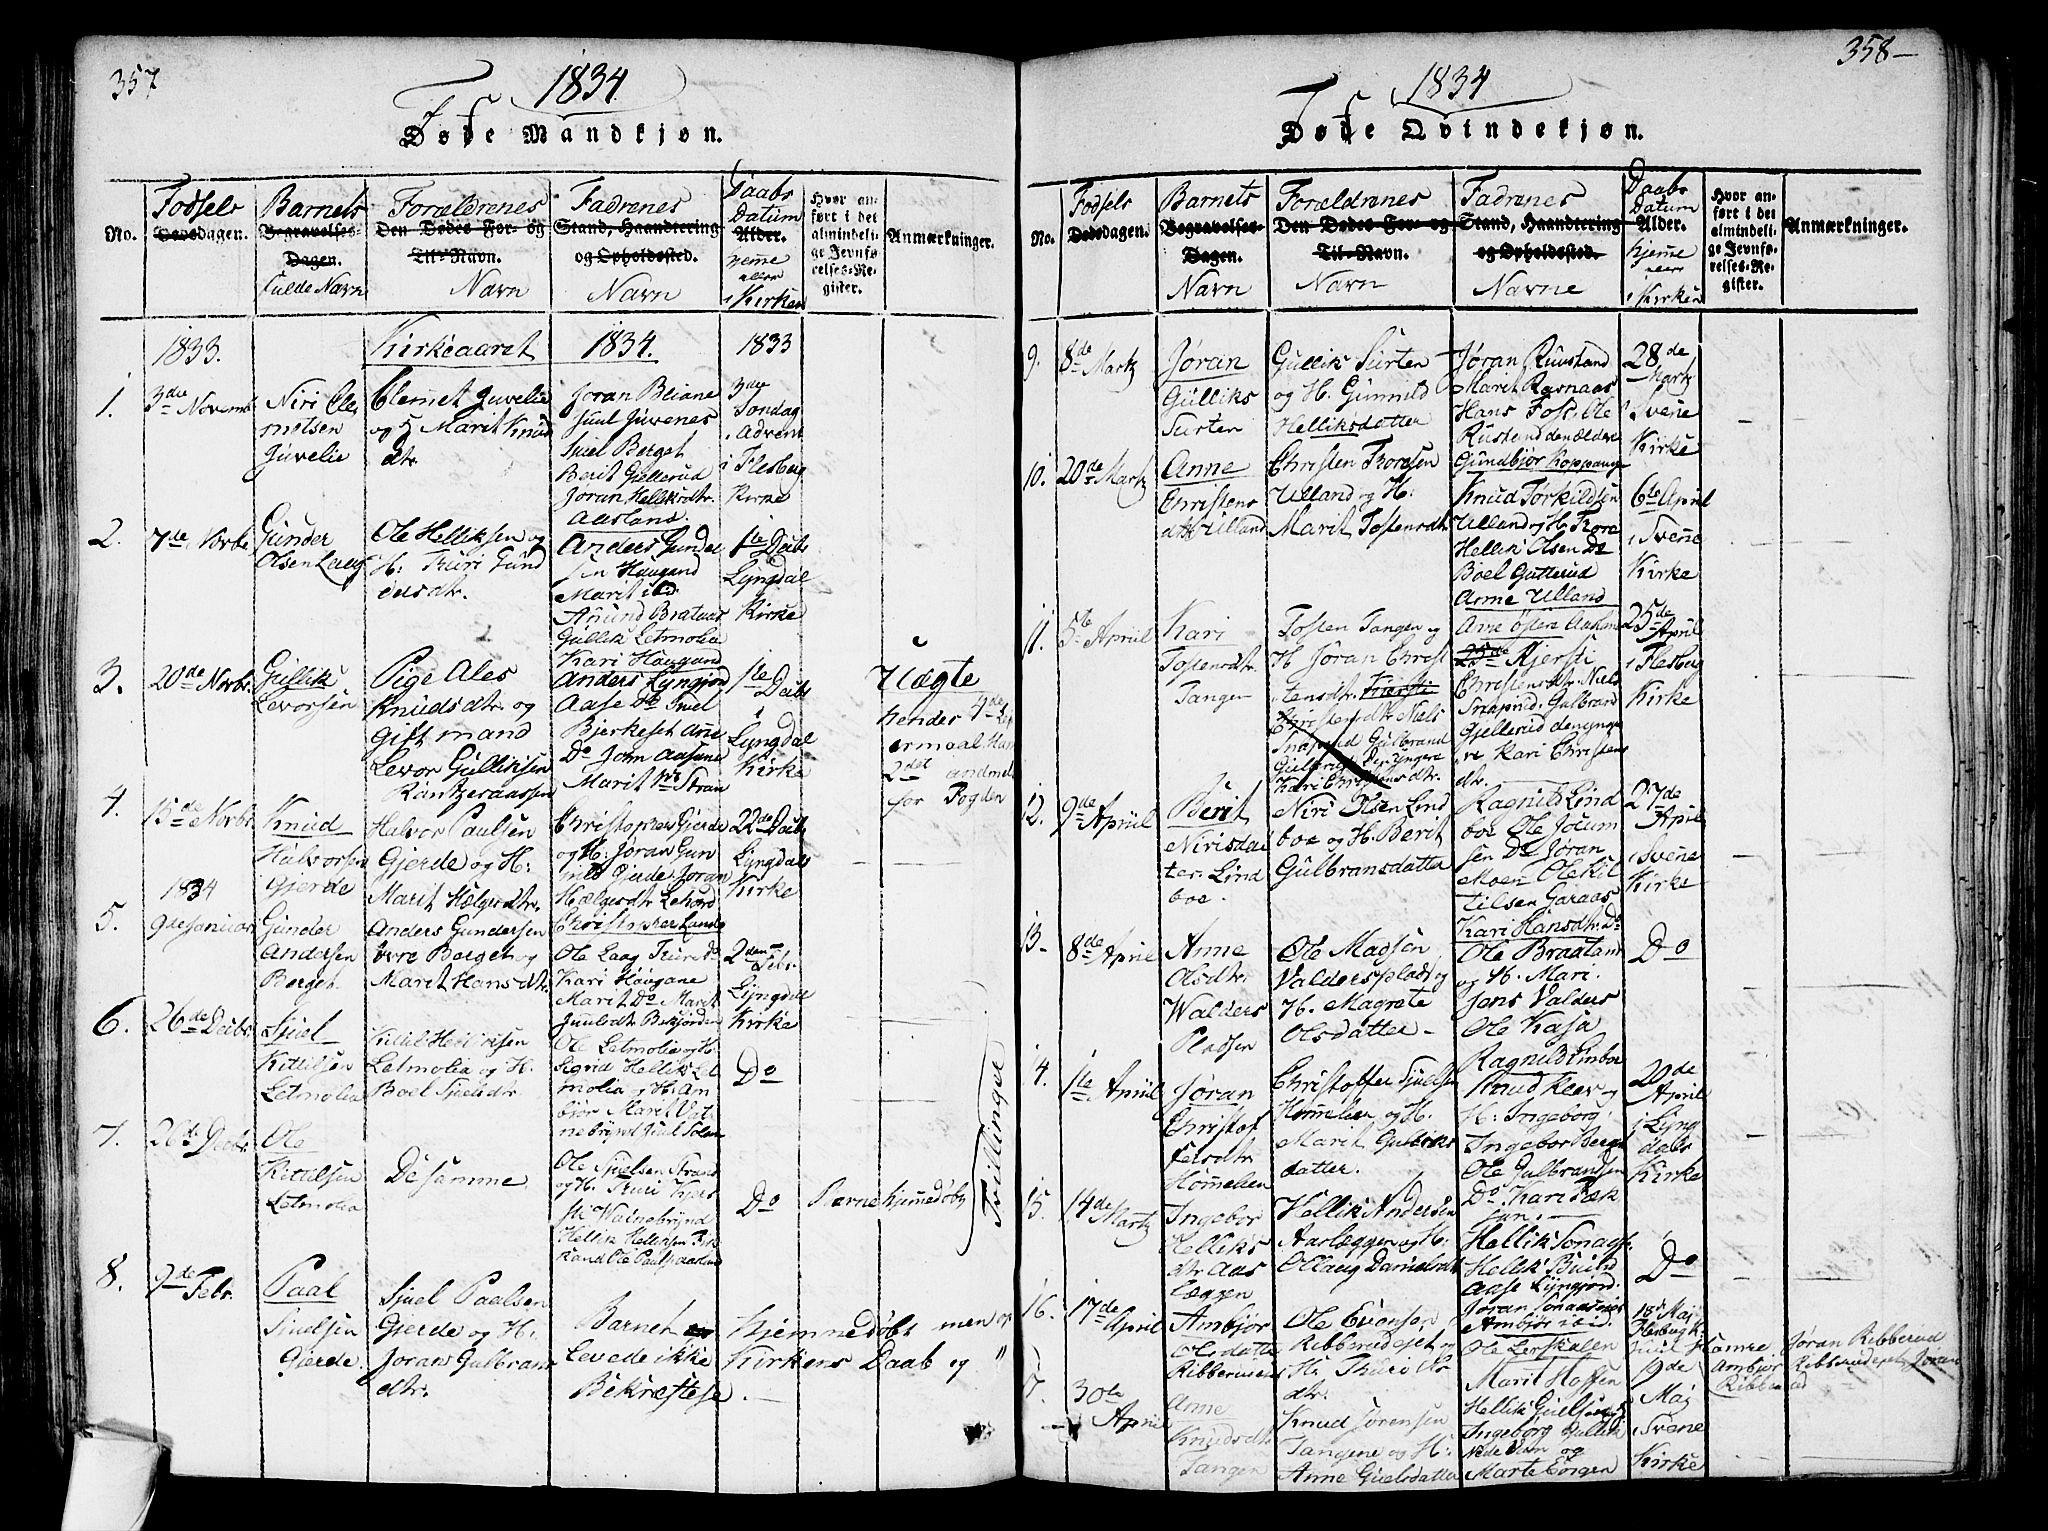 357
1834
Døde Mandkjøn.
No.
Fødsels
Dødsdagen.
Barnets
Begravelses-
Dagen.
Fulde Navn
Forældrenes
Den Dødes For- og
Til-Navn.
Navn
Fadrenes
Stand, Haandtering
og Opholdssted.
Navn
Daabs
Datum
Alder.
hjemme
eller
i Kirken
Hvor an-
ført i det
almindeli-
ge Jevnfø-
relses-Re-
gister.
Anmærkninger.
1833.
Kirkeaaret
1834.
1833
1.
3de Novemb
Niri Cle
metsen
Juvelie
Clemet Juvelie
og H Marit Knud
dtr.
Joran Bliane
Juul Juvenes
Sjuel Berget
Berit Gjellerud
Joran Helliksdtr.
Aasland
3die
Søndag
i Advent
i Flesberg
Kirke
2.
7de Novbr
Gunder
Olsen Laag
Ole Helliksen og
H: Turi Gund
ersdtr.
Anders Gunder
sen Haugand
Marit ibd
Anund Brataas
Gullik Letmolia
Kari Haugand
1ste Decbr
Lyngdal
Kirke
3.
20de Novbr.
Gullik
Levorsen
Pige Ales
Knudsdtr. og
Gift mand
Levor Gulliksen
Anders Lyngjord
Aase Do Sjuel
Bjerkeset Ane
Do John Aasund
Marit Stran
1ste Decbr
i
Lyngdal
Kirke
Uægte
hendes 4de
ermaal Ham
2det anmel
for Fogden
4.
15de Novbr.
Knud
Halvorsen
Gjerde
Halvor Paulsen
Gjerde og H:
Marit Helgesdtr.
Christopher Gjerde
og H: Joran Gun
ild Gjerde Joran
Helgesdtr Lehord
Christopher Lande
22de Decbr
Lyngdals
Kirke
1834
5.
9de Januar
Gunder
Andersen
Berget
Anders Gundersen
øvre Berget og
Marit Hansdtr.
Ole Laag Turi Do
Kari Haugane
Marit Do Marit
Juulsdtr Bekjorden
2den Febr.
Lyngdal
Kirke
6.
26de Decbr.
Sjuel
Kittilsen
Letmolia
Kittil Helliksen
Letmolia og H.
Boel Sjuelsdtr.
Ole Letmolia og H.
Sigrid Hellik Let
molia og H: Am
bjør Marit Vat
nebrynd Juul Solem
Do
7.
26de Decbr.
Ole
Kittilsen
Letmolia
De samme
Ole Sjuelsen Strand
og H. Turi Kjer
sti Watnebrynd
Hellik Helliksen
Do
Pærne hjemmedøbt
Tvillinger
8.
9de Febr.
Paal
Sjuelsen
Gjerde.
Sjuel Paalsen
Gjerde og H:
Joran Gulbrans
dtr.
Barnet er hjemmedøbt men op
levede ikke Kirkens Daab og
Bekræftelse.
358
1834
Døde Qvindekjøn.
No.
Fødsels
Dødsdagen.
Barnets
Begravelses-
Dagen.
Navn
Forældrenes
Den Dødes For- og
Til-Navn.
Navn
Fadrenes
Stand, Haandtering
og Opholdssted.
Navne
Daabs
Datum
Alder.
hjemme
eller
i Kirken
Hvor an-
ført i det
almindeli-
ge Jevnfø-
relses-Re-
gister.
Anmærkninger.
9.
8de Martz
Jøran
Gulliks
Surten
Gullik Surten
og H. Gunnild
Helliksdatter
Jøran Ruustand
Marit Rasnaas
Hans Fos, Ole
Rustand den ældre
Gundbjør Koppang
28de
Martz
i Svene
Kirke
10.
20de Martz
Anne
Christens
dtr Ulland
Christen Toresen
Ulland og H:
Marit Tostensdtr
Knud Torkildsen
Ulland og H. Tore
Hellik Olsen Do
Boel Gutterud
Anne Ulland
6te April
i Svene
Kirke
11.
5te April
Kari
Tostensdtr.
Tangen
Tosten Tangen og
H Joran Christ
tensdtr. Kjersti
Christensdtr Niels
Snapud Gulbrand
Gjellerud den yngre
Kari Christensdtr.
Ane østre
25de Kjersti
Christensdtr. Niels
Snapud, Gulbrand
Gjellerud den yng
re Kari Christens
dtr.
25de
April
i Flesberg
Kirke
12.
9de April
Berit
Nirisdat
ter Lind
boe.
Niri Olsen Lind
boe og H. Berit
Gulbransdatter
Ragnild Lind
boe Ole Jocum
sen Do Jøran
Moen Ole Kit
tilsen Garaas
Kari Hansdtr. Do
27de
April
i Svene
Kirke
13.
8de April
Anne
Olsdtr.
Walders
Pladsen
Ole Madsen
Valderspladsog
H. Magrete
Olsdatter
Ole Braaland
og H. Mari
Jens Valders
Ole Kasa
Ragnild Lindboe
Do
14.
1ste April
Jøran
Christof
fersdtr.
Hommelien
Christoffer Sjuelsen
Hommelien og H.
Marit Gulliks
datter.
Knud Kleev og
H: Ingeborg
Ingebor Berget
Ole Gulbrandsen
Do Kari Bæk
kun.
20de
April
i Lyng
dals
Kirke
15.
14de
Martz
Ingebor
Helliks
dtr. Aas
læggen
Hellik Andersen
Aaslæggen og H:
Ollaug Danielsdtr
Hellik Tonaas
Hellik Buind
Aase Lyngjord.
Jøran Tonaas
Ambjør ibid.
Do
16.
17de
April
Ambjør
Olsdatter
Ribberudeie
Ole Evensen
Ribberudeiet og
H. Thuri
dtr.
Ole Lerskalen
18de Maj
Flesberg K.
Samme Jøran Ribberud
Ambjør Ribberudeiet, Jøran
Ribberud
17
30te
April
Anne
Knudsdtr.
Tangen
Knud Sørensen
Tangene og H:
Anne Gjuelsdatter
Marit Hoffsen
Hellik Gjuelsen og H
Ingeborg Gullik
Nede og
Marte Torgen
19de
Maj
i Svene
Kirke